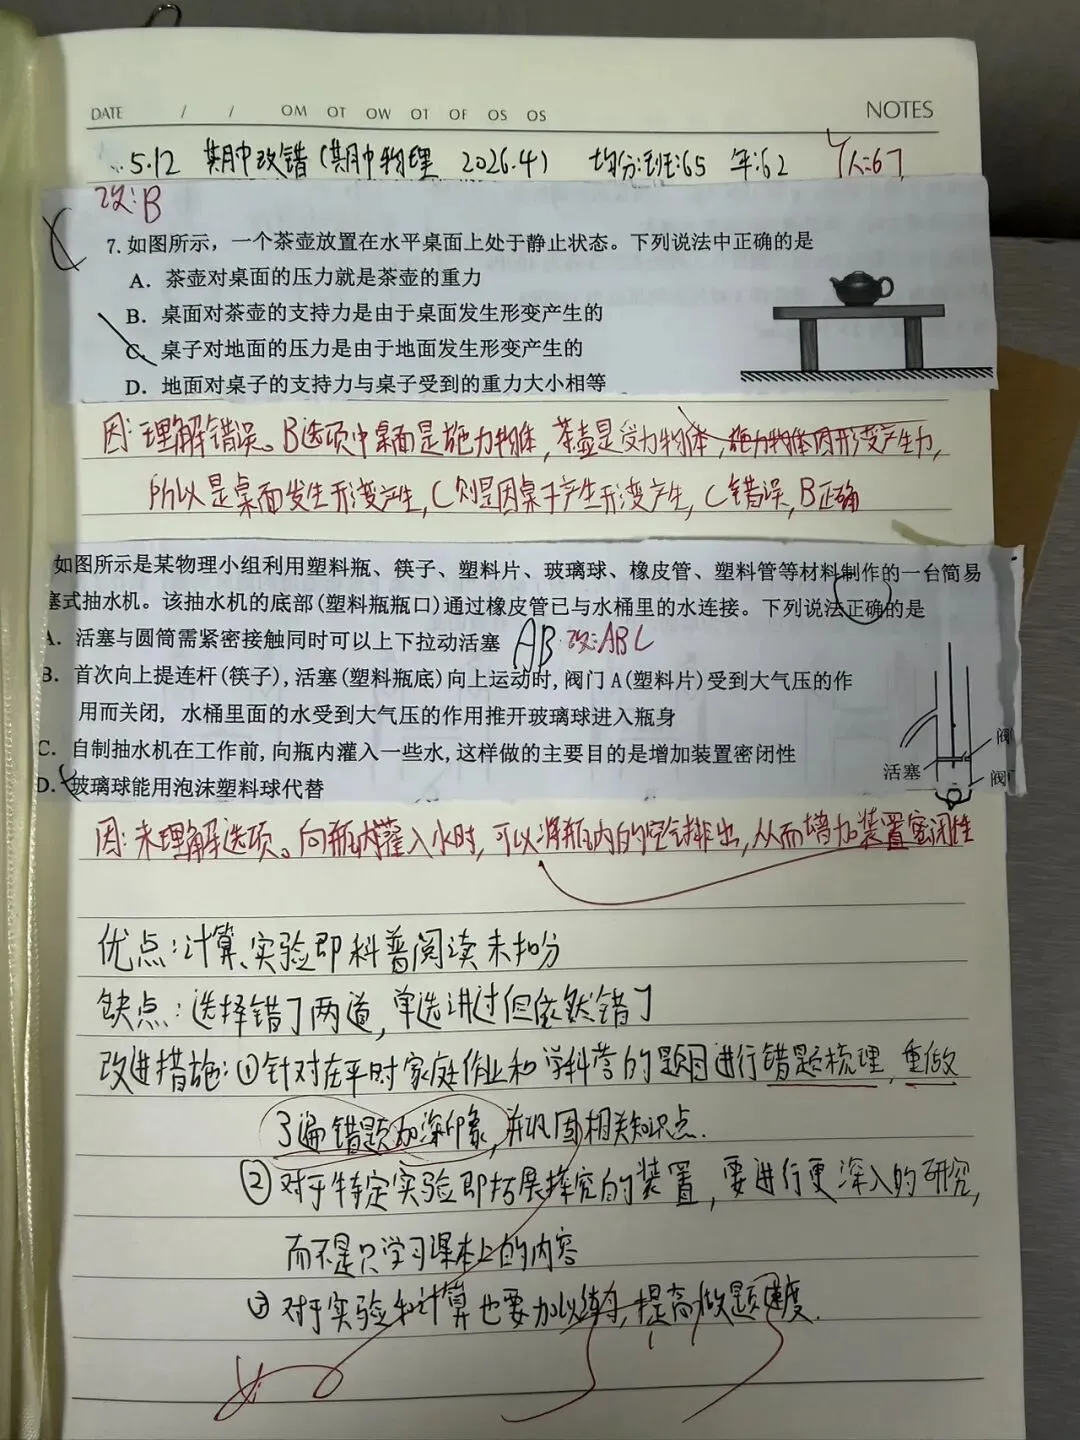 DATE / / OM OT OW OT OF OS OS NOTES
5.12 期中改错(期中物理 2026.4) 均分:班:65 年:62 个人:67
改:B
7. 如图所示，一个茶壶放置在水平桌面上处于静止状态。下列说法中正确的是
A. 茶壶对桌面的压力就是茶壶的重力
B. 桌面对茶壶的支持力是由于桌面发生形变产生的
C. 桌子对地面的压力是由于地面发生形变产生的
D. 地面对桌子的支持力与桌子受到的重力大小相等
因:理解错误。B选项中桌面是施力物体,茶壶是受力物体,施力物体因形变产生力,
所以是桌面发生形变产生,C则是因桌子产生形变产生,C错误,B正确
如图所示是某物理小组利用塑料瓶、筷子、塑料片、玻璃球、橡皮管、塑料管等材料制作的一台简易
塞式抽水机。该抽水机的底部(塑料瓶瓶口)通过橡皮管已与水桶里的水连接。下列说法正确的是
A. 活塞与圆筒需紧密接触同时可以上下拉动活塞 AB 改:ABC
B. 首次向上提连杆(筷子),活塞(塑料瓶底)向上运动时,阀门A(塑料片)受到大气压的作
用而关闭, 水桶里面的水受到大气压的作用推开玻璃球进入瓶身
C. 自制抽水机在工作前,向瓶内灌入一些水,这样做的主要目的是增加装置密闭性
D. 玻璃球能用泡沫塑料球代替
阀
活塞
阀
因:未理解选项。向瓶内灌入水时,可以将瓶内的空气排出,从而增加装置密闭性
优点:计算、实验即科普阅读未扣分
缺点:选择错了两道,单选讲过但依然错了
改进措施:①针对在平时家庭作业和学科营的题目进行错题梳理,重做
3遍错题加深印象,并巩固相关知识点.
②对于特定实验即拓展探究的装置,要进行更深入的研究,
而不是只学习课本上的内容
③对于实验和计算也要加以练习,提高做题速度.